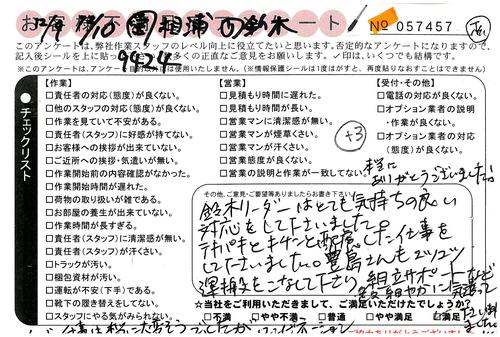 № 057457
9424
このアンケートは、弊社作業スタッフのレベル向上に役立てたいと思います。否定的なアンケートになりますので、
※このアンケートは、アンケート目的以外には使用いたしません。(※情報保護シールは1度はがすと、再度貼りなおすことはできません)
チェックリスト
【作業】
□責任者の対応(態度)が良くない。
□他のスタッフの対応(態度)が良くない。
□作業を見ていて不安がある。
□責任者(スタッフ)に好感が持てない。
□お客様への挨拶が出来ていない。
□ご近所への挨拶・気遣いが無い。
□作業開始前の内容確認がなかった。
□作業開始時間が遅れた。
□荷物の取り扱いが雑である。
□お部屋の養生が出来ていない。
□作業時間が長すぎる。
□責任者(スタッフ)に清潔感が無い。
□責任者(スタッフ)が汗くさい。
□トラックが汚い。
□梱包資材が汚い。
□運転が不安(下手)である。
□靴下の履き替えをしてない。
□スタッフにやる気がみられない。
【営業】
□見積もり時間に遅れた。
□見積もり時間が長い。
□営業マンに清潔感が無い。
□営業マンが煙草くさい。
□営業マンが汗くさい。
□営業態度が良くない。
□営業の説明と作業が一致してない。
【受付・その他】
□電話の対応が良くない。
□オプション業者の説明
・作業が良くない。
□オプション業者の対応
(態度)が良くない。
+3
本当に
ありがとうございました。
その他、ご意見・ご要望等ありましたらお書き下さい。
鈴木リーダーはとても気持ちの良い
対応をして下さいました。
テキパキとキチンと配慮した仕事を
して下さいました。豊島さんもコツコツ
運搬をこなして下さり、組立サポートなど
★当社をご利用いただきまして、ご満足いただけたでしょうか?
□不満 □やや不満 □普通 □やや満足 □満足